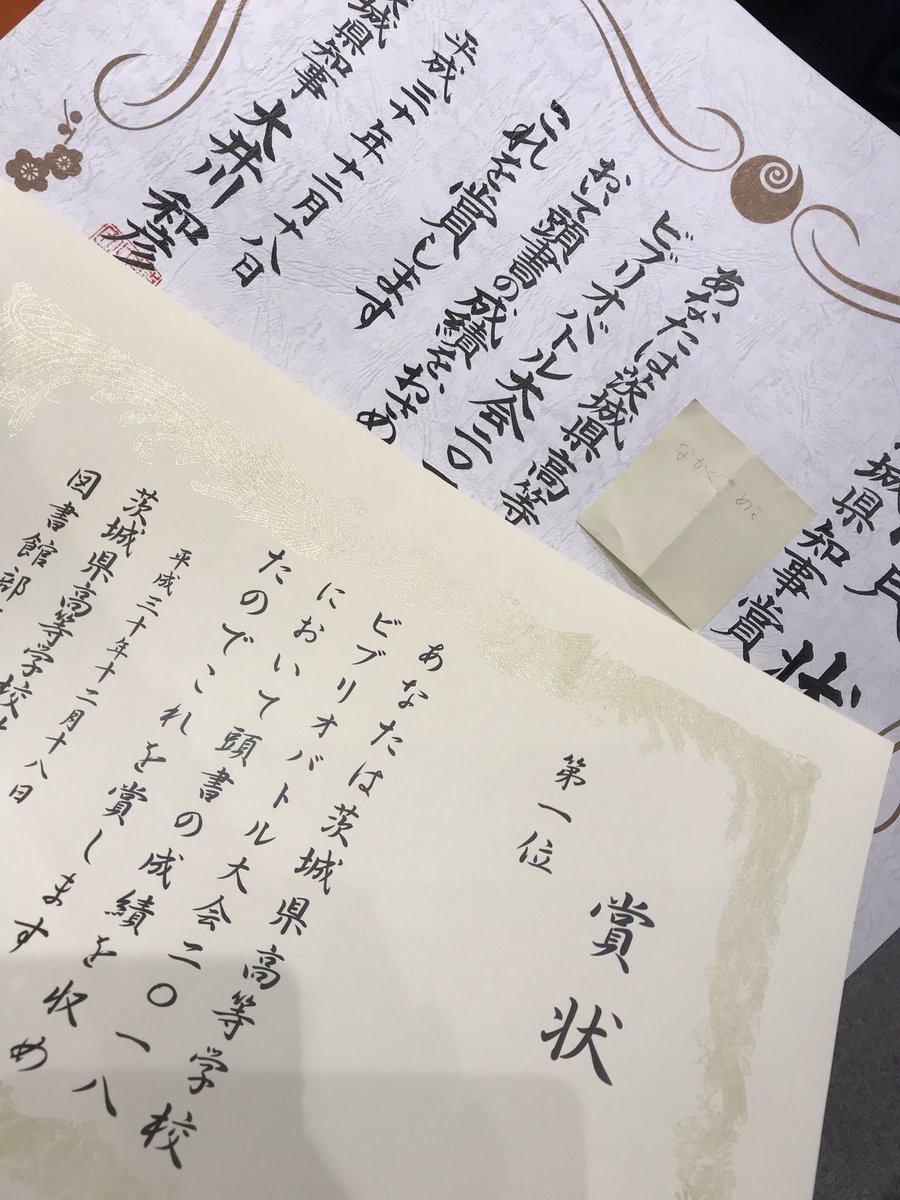 賞状
第一位
あなたは茨城県高等学校
ビブリオバトル大会二〇一八
において頭書の成績を収め
たのでこれを賞します
平成三十年十二月十八日
茨城県高等学校
図書館部
状
城県知事賞
あなたは茨城県高等
ビブリオバトル大会二〇一
おいて頭書の成績をおさめ
これを賞します
平成三十年十二月十八日
茨城県知事
大井川和彦
なかくきめも